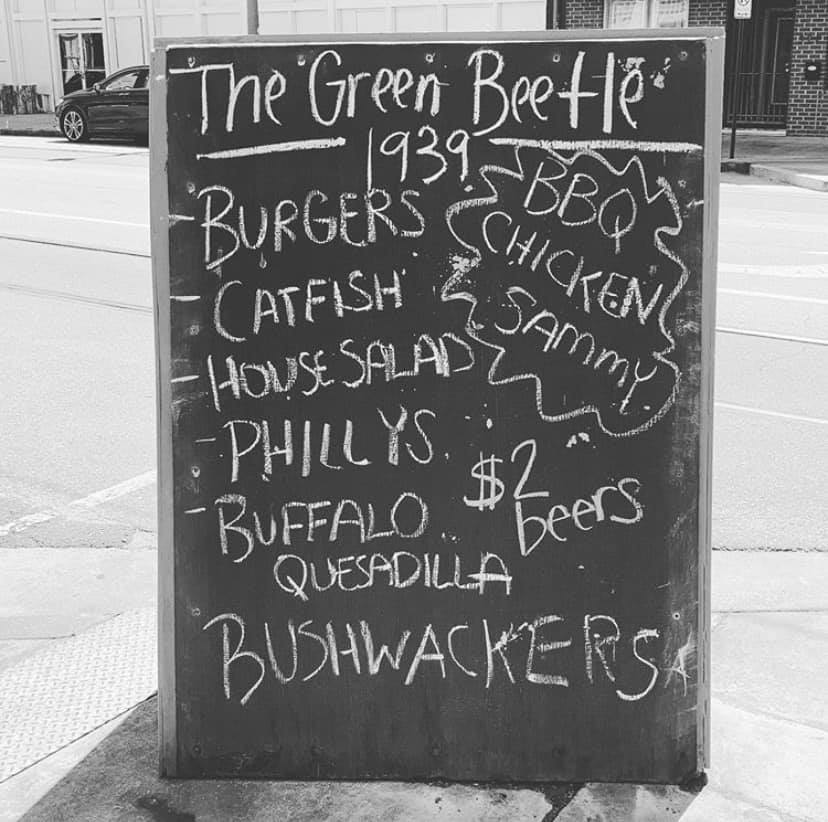 The Green Beetle
1939
- BURGERS
- CATFISH
- HOUSE SALAD
- PHILLYS
- BUFFALO
QUESADILLA
BBQ
CHICKEN
SAMMY
$2
beers
BUSHWACKERS